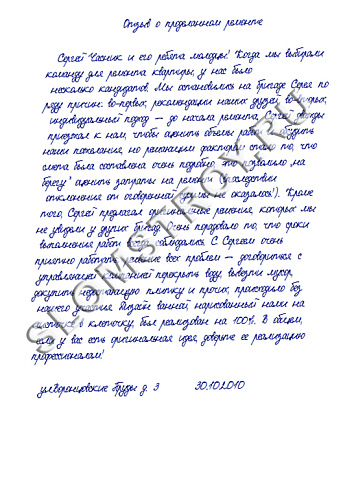 Отзыв о проделанном ремонте
Сергей Чесник и его ребята молодцы! Когда мы выбирали
команду для ремонта квартиры, у нас было
несколько кандидатов. Мы остановились на бригаде Сергея по
ряду причин: во-первых, рекомендации наших друзей, во-вторых,
индивидуальный подход – до начала ремонта Сергей дважды
приезжал к нам, чтобы оценить объемы работ и обсудить
наши пожелания, но решающим фактором стало то, что
смета была составлена очень подробно, это позволило „на
берегу" оценить затраты на ремонт (впоследствии
отклонения от оговоренной суммы не оказалось!). Кроме
того, Сергей предлагал оригинальные решения, которых мы
не увидели у других бригад. Очень порадовало то, что сроки
выполнения работ всегда соблюдались. С Сергеем очень
приятно работать, решение всех проблем – договориться с
управляющей компанией перекрыть воду, вывезти мусор,
докупить недостающую плитку и прочих, происходило без
нашего участия. Дизайн ванной, нарисованный нами на
листочке в клеточку, был реализован на 100%. В общем,
если у вас есть оригинальная идея, доверьте ее реализацию
профессионалам!
ул. Воронцовские Пруды д. 3 30.10.2010
SLOMSTROY.RU